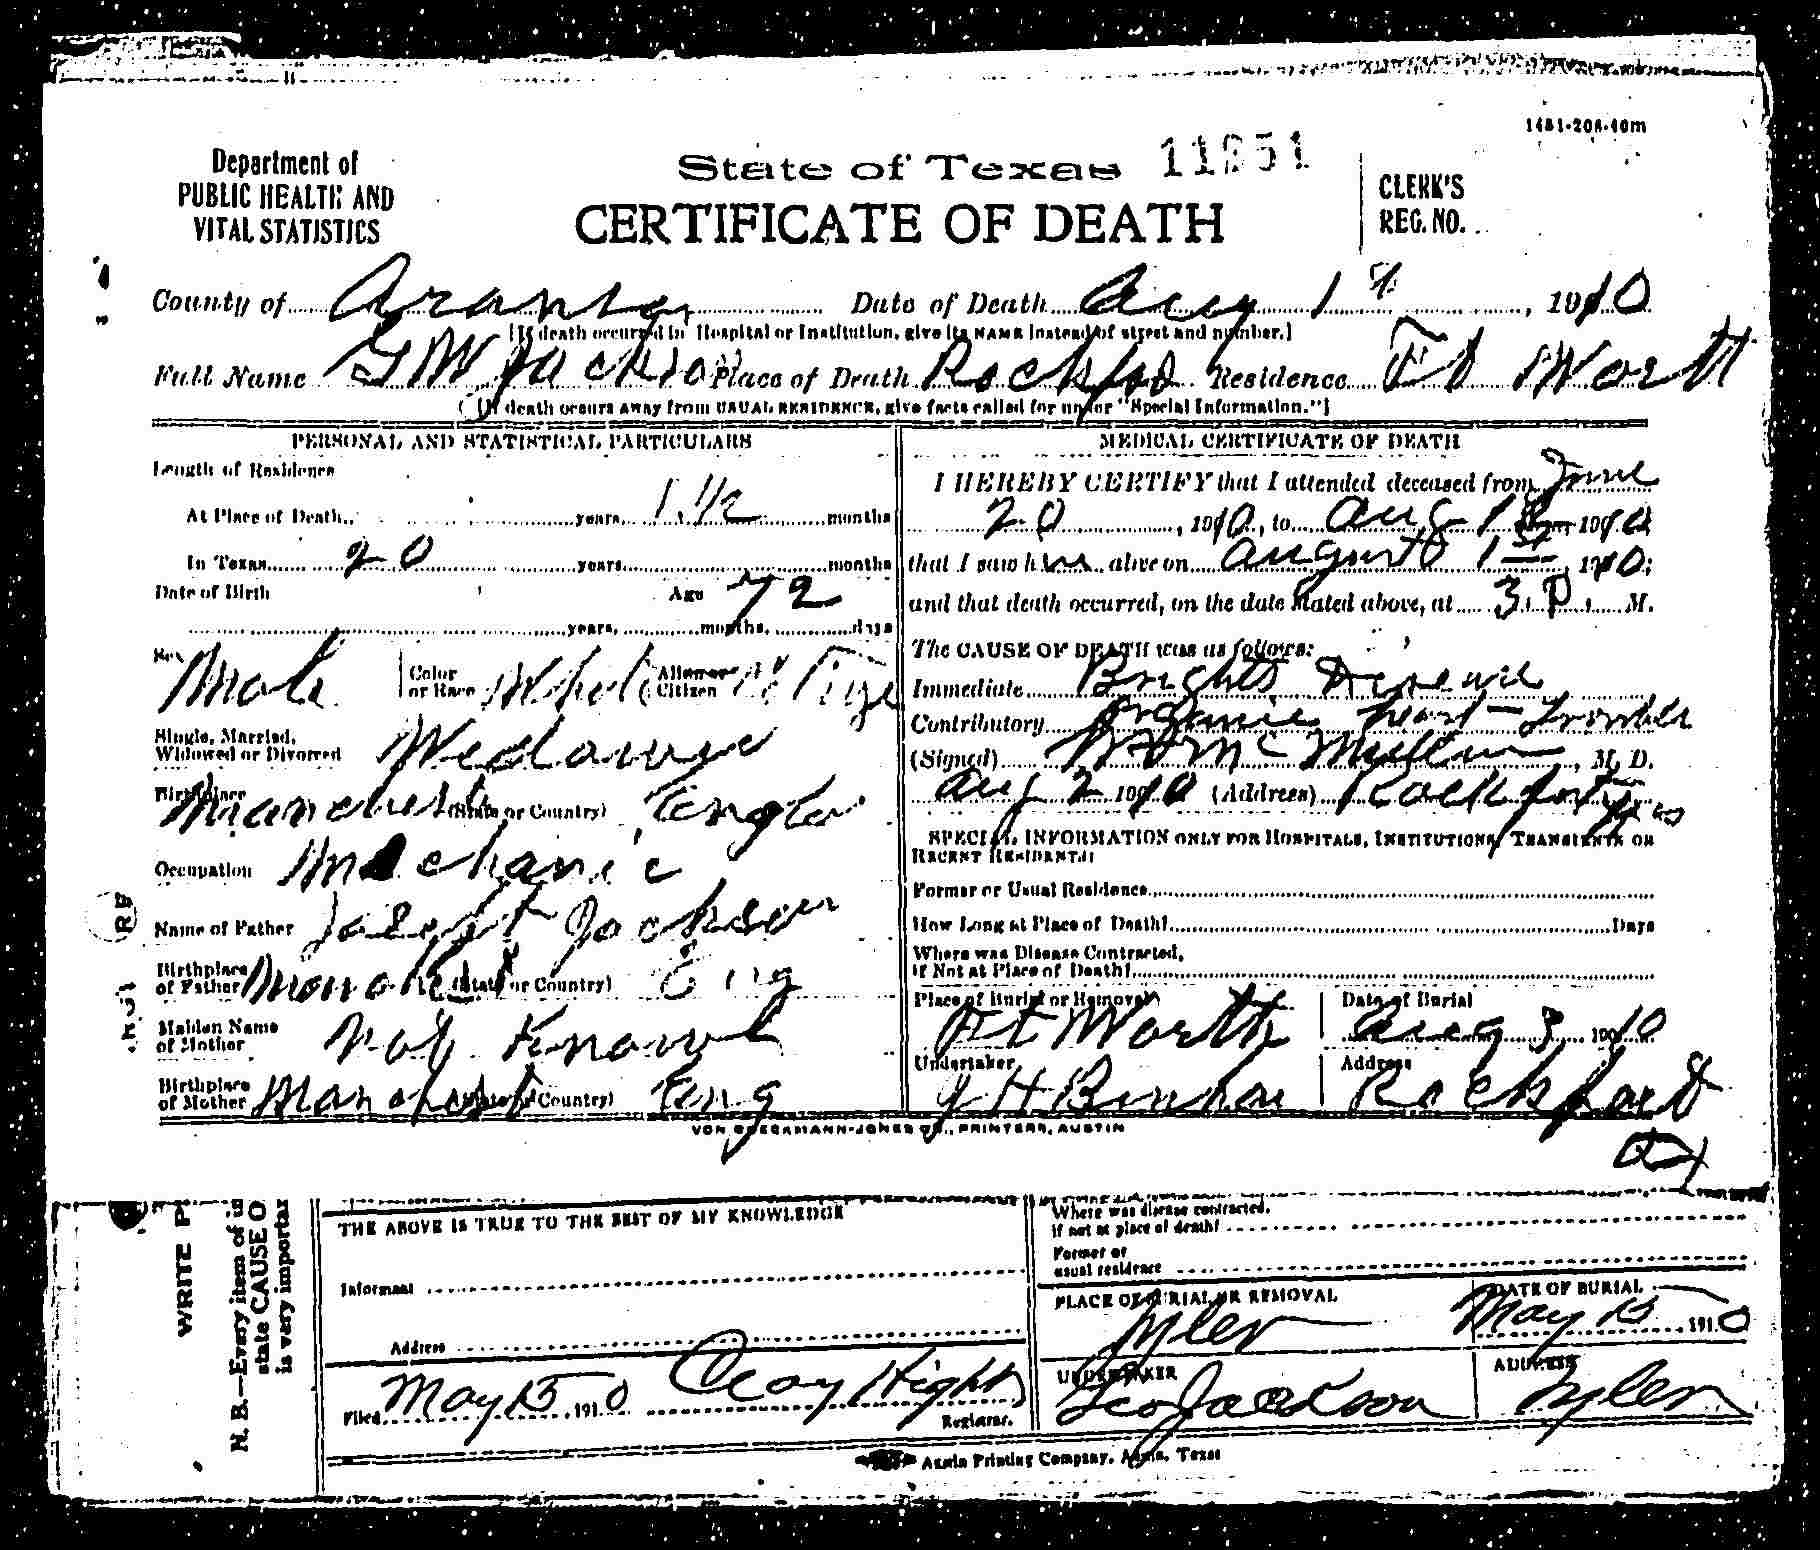 1451-206-40m
Department of
PUBLIC HEALTH AND
VITAL STATISTICS
State of Texas
CERTIFICATE OF DEATH
CLERK'S
REG. NO.
County of Aransas Date of Death Aug 1st, 1910
[If death occurred in Hospital or Institution, give its NAME instead of street and number.]
Full Name G W Jackson Place of Death Rockport Residence Ft Worth
[If death occurs away from USUAL RESIDENCE, give facts called for under "Special Information."]
PERSONAL AND STATISTICAL PARTICULARS
Length of Residence
At Place of Death years 1 1/2 months
In Texas 20 years months
Date of Birth Age 72
years, months, days
Sex Male Color or Race White Alien or Citizen
Single, Married, Widowed or Divorced
Birthplace (State or Country)
Occupation Mechanic
Name of Father Joseph Jackson
Birthplace of Father (State or Country) Eng
Maiden Name of Mother not Known
Birthplace of Mother (State or Country) Eng
MEDICAL CERTIFICATE OF DEATH
I HEREBY CERTIFY that I attended deceased from June
20, 1910, to Aug 1st 1910
that I saw him alive on August 1st, 1910;
and that death occurred, on the date stated above, at 3 P. M.
The CAUSE OF DEATH was as follows:
Immediate Brights Disease
Contributory Organic heart trouble
(Signed) McMullen, M. D.
Aug 2 1910 (Address) Rockport Texas
SPECIAL INFORMATION ONLY FOR HOSPITALS, INSTITUTIONS, TRANSIENTS OR
RECENT RESIDENTS:
Former or Usual Residence
How Long at Place of Death? Days
Where was Disease Contracted,
if Not at Place of Death?
Place of Burial or Removal Ft Worth Date of Burial Aug 3 1910
Undertaker J H Address Rockport
VON BOECKMANN-JONES CO., PRINTERS, AUSTIN
WRITE
N. B.—Every item of
state CAUSE O
is very importan
THE ABOVE IS TRUE TO THE BEST OF MY KNOWLEDGE
Informant
Address
Filed May 15 1910 Clay Hight Registrar.
Where was disease contracted,
if not at place of death?
Former or
usual residence
PLACE OF BURIAL OR REMOVAL Tyler DATE OF BURIAL May 15, 1910
UNDERTAKER Leo Jackson ADDRESS Tyler
Austin Printing Company, Austin, Texas